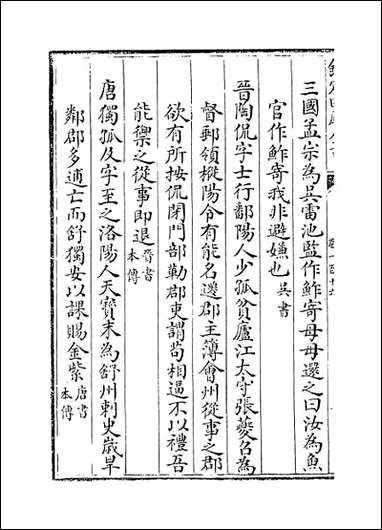 三國孟宗為吳雷池監作鮓寄母母還之曰汝為魚
官作鮓寄我非避嫌也吳書
晉陶侃字士行鄱陽人少孤貧廬江太守張夔召為
督郵領樅陽令有能名遷郡主簿會州從事之郡
欲有所按侃閉門部勒郡吏謂苟相逼不以禮吾
能禦之從事即退晉書本傳
唐獨孤及字至之洛陽人天寶末為舒州刺史歲旱
鄰郡多逋亡而舒獨安以課賜金紫唐書本傳